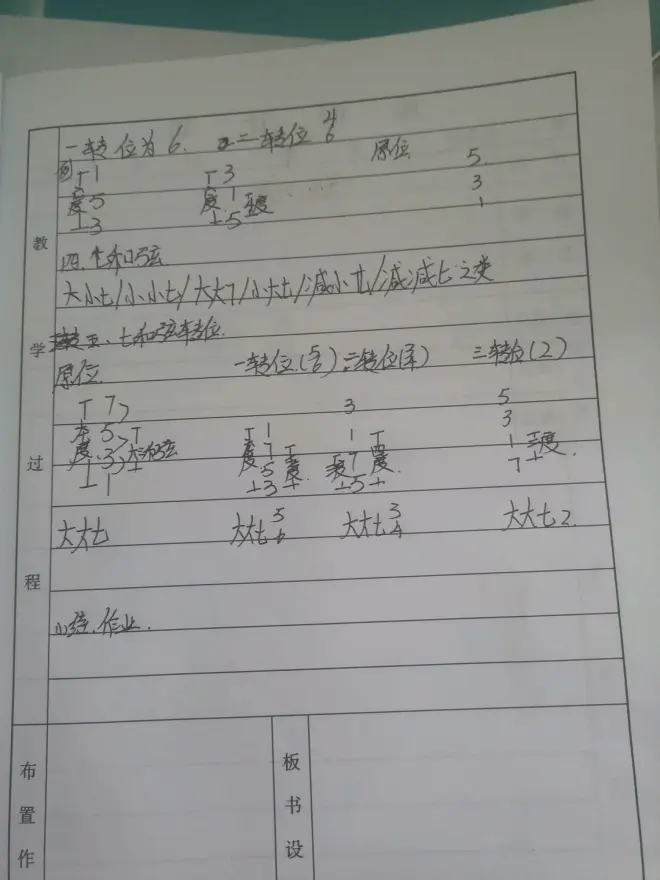 一转位为6. 二转位 4 6
例 1 3 原位 5
度5 度1 3
3 5 1
四.七和弦
大小七/小小七/大大7/小大七/减小七/减减七之类
五、七和弦转位.
原位 一转位(5 6) 二转位(3 4) 三转位(2)
7 3 5
5 1 1 3
度 3 大三和弦 度 7 7 度 1 二度.
1 5 度 5 7
3
大大七 大大七 5 6 大大七 3 4 大大七2.
小结、作业.
教学过程
布置作
板书设